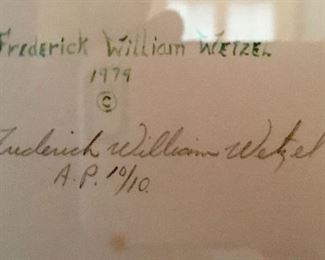 Frederick William Wetzel
1979
©
Frederick William Wetzel
A.P. 10/10